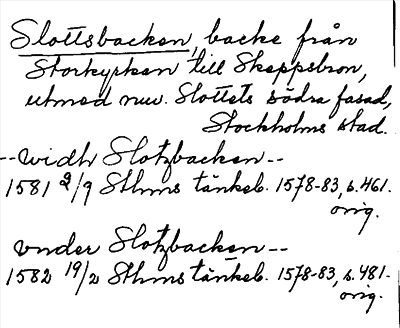 Slottsbacken, backe från
Storkyrkan till Skeppsbron,
utmed nuv. Slottets södra fasad,
Stockholms stad.
--widh Slotzbacken--
1581 2/9 Sthms tänkeb. 1578-83, s. 461.
orig.
vnder Slotzbacken--
1582 19/2 Sthms tänkeb. 1578-83, s. 481.
orig.